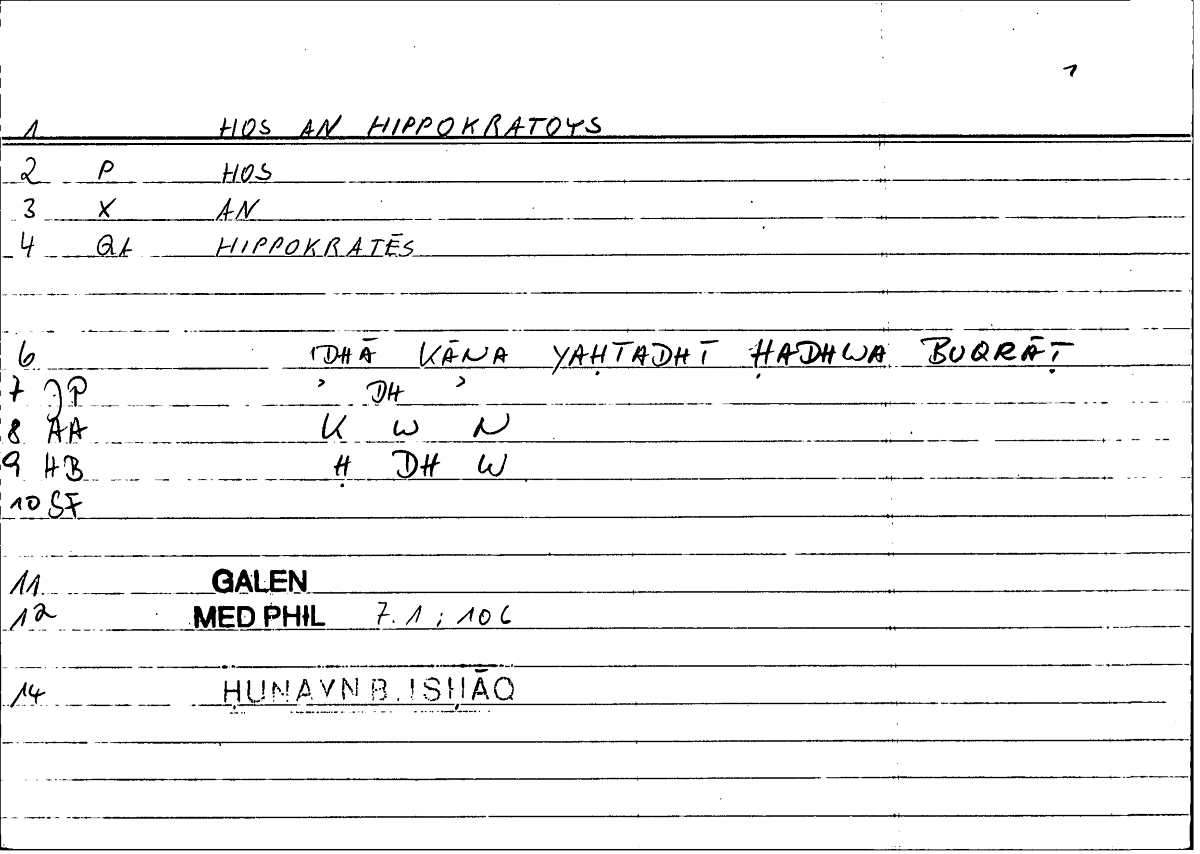 1
1 HOS AN HIPPOKRATOYS
2 P HOS
3 X AN
4 QA HIPPOKRATĒS
6 'IDHĀ KĀNA YAḤTADHĪ ḤADHWA BUQRĀṬ
7 JP ʾ DH ʾ
8 AA K W N
9 HB Ḥ DH W
10 SF
11 GALEN
12 MED PHIL 7.1; 106
14 ḤUNAYN B. ISḤĀQ